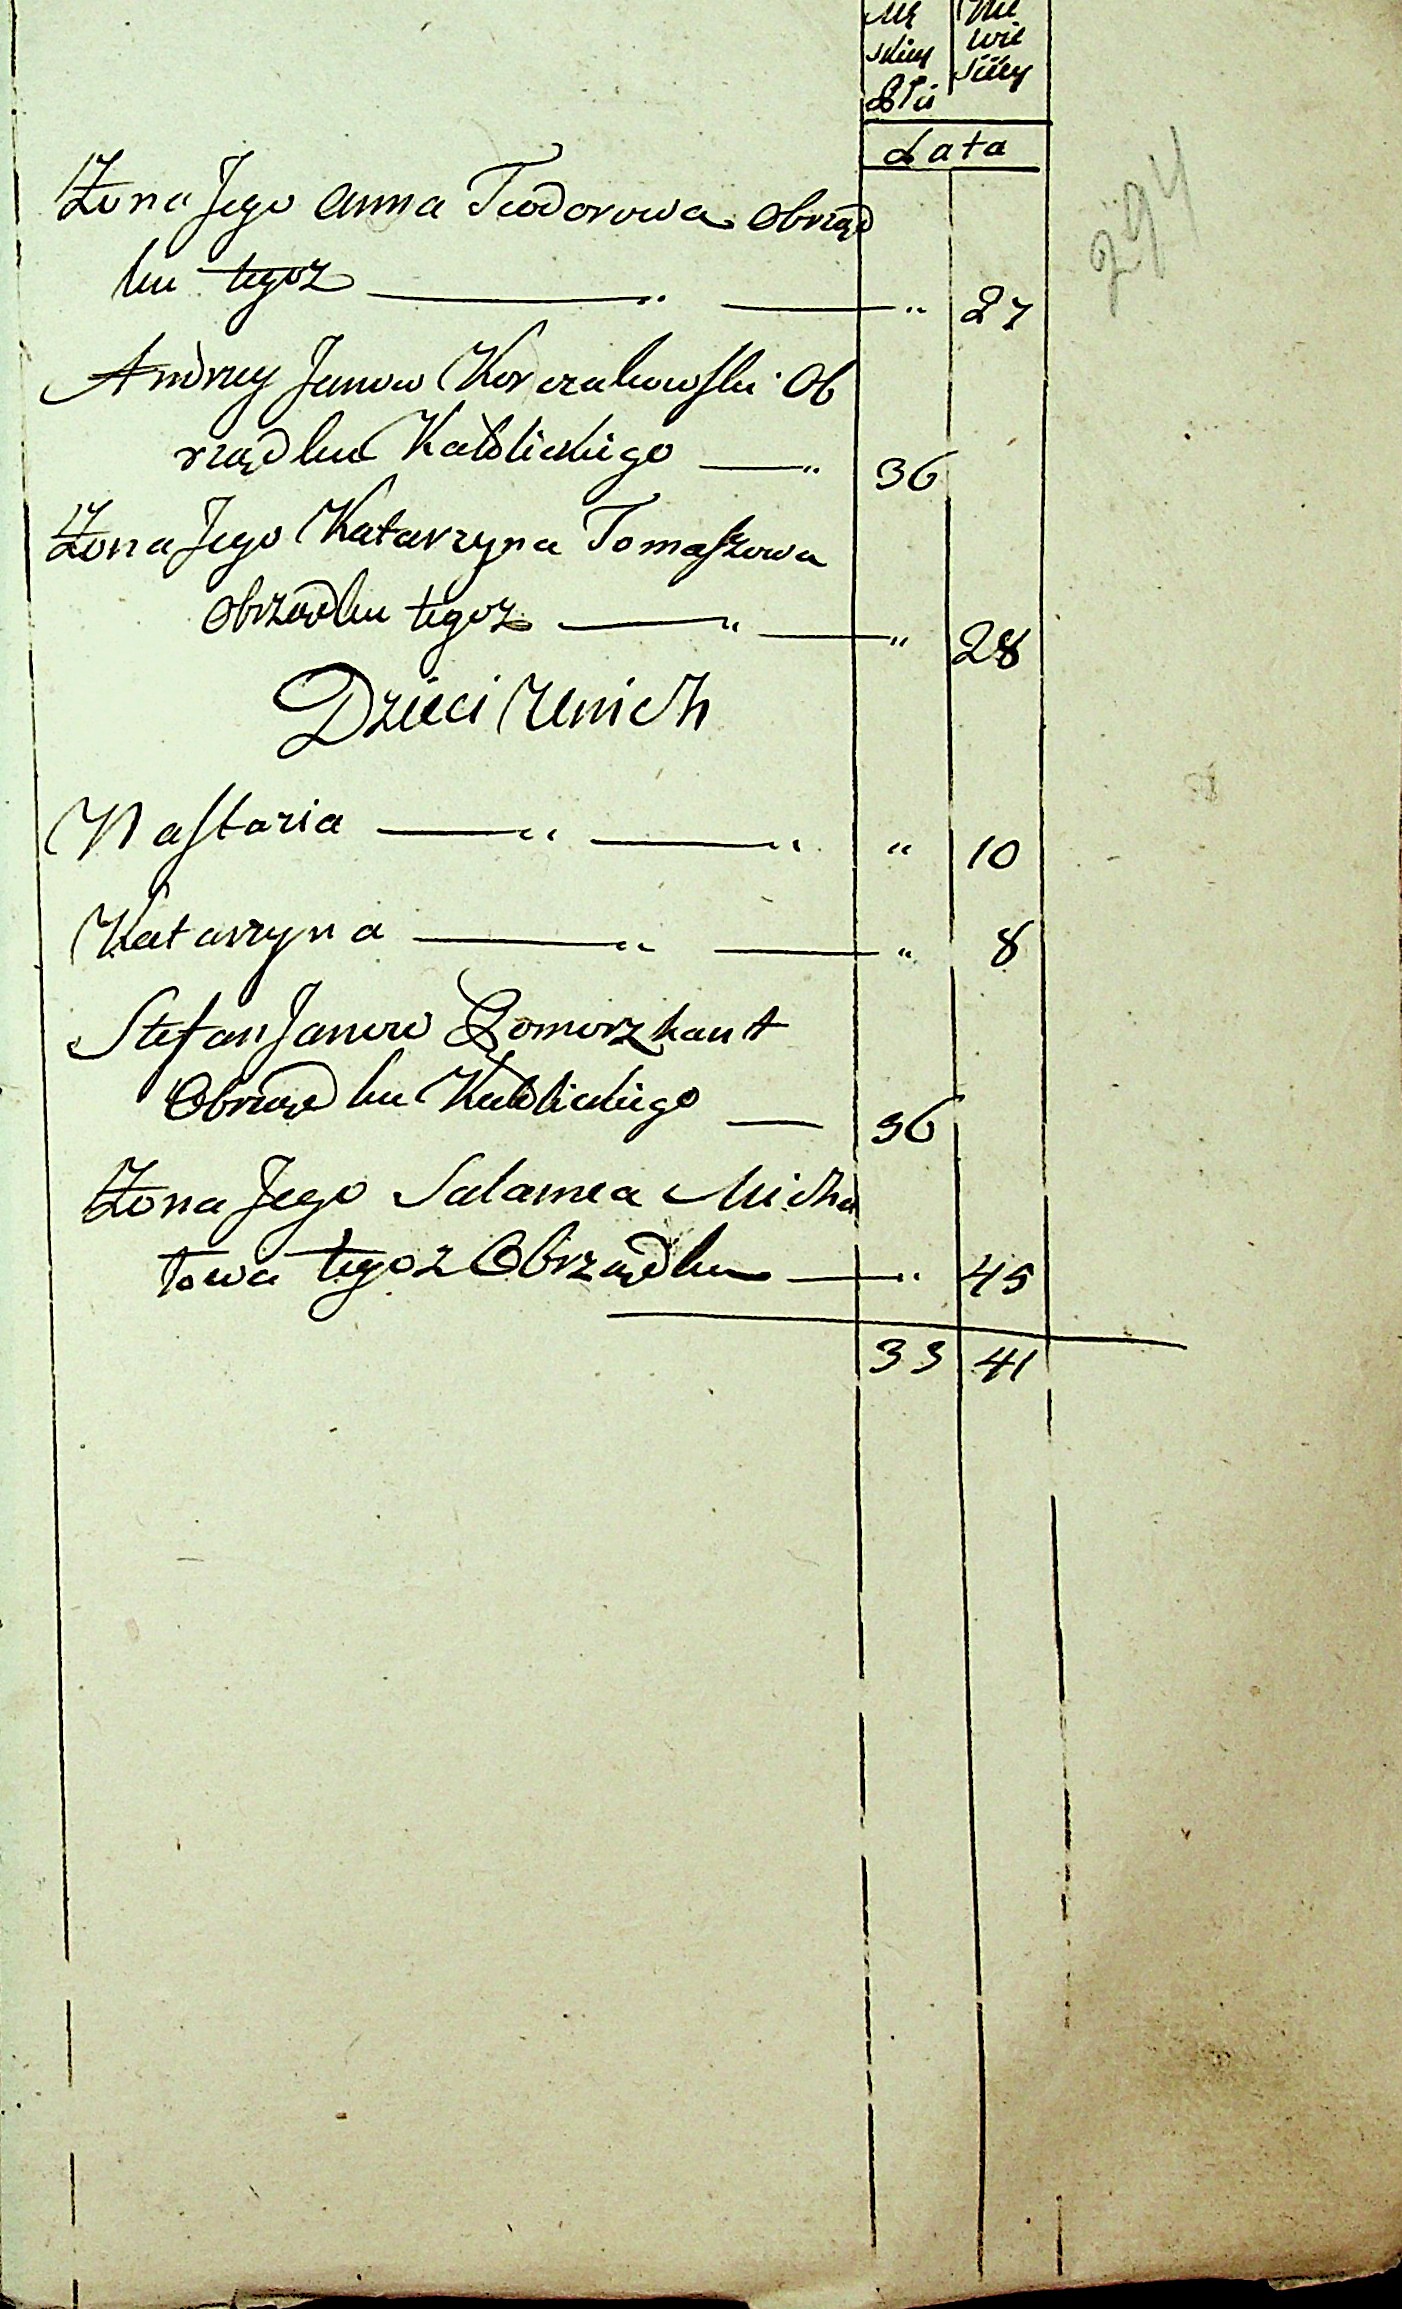 Mę Nie
skiey wie
Płci ściey
Lata
Żona Jego Anna Teodorowa Obrząd
ku tegoż — „ — „ 27
Andrzey Janow Korczakowski Ob
rządku Katolickiego — „ 36
Żona Jego Katarzyna Tomaszowa
Obrządku tegoż — „ — „ 28
Dzieci z Unich
Nastazia — „ — „ „ 10
Katarzyna — „ — „ 8
Stefan Janow
Obrządku Katolickiego — 36
Żona Jego Salamea Micha
łowa tegoż Obrządku — „ 45
33 41
294